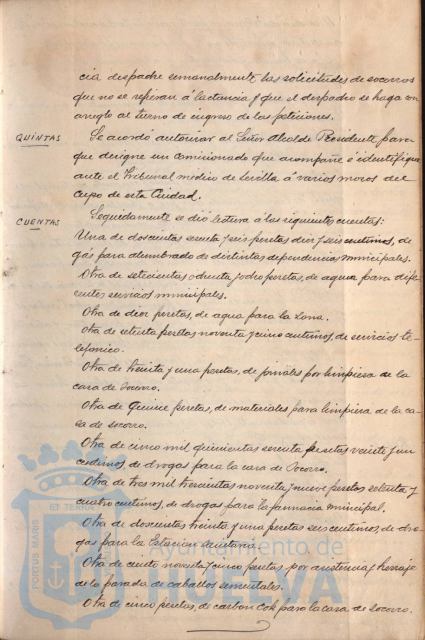 cia despache semanalmente las solicitudes de socorros
que no se refieran á lactancia y que el despacho se haga con
arreglo al turno de ingreso de las peticiones.
QUINTAS
Se acordó autorizar al Señor Alcalde Presidente para
que designe un comisionado que acompañe é identifique
ante el Tribunal medico de Sevilla á varios mozos del
cupo de esta Ciudad.
CUENTAS
Seguidamente se dió lectura á las siguientes cuentas:
Una de doscientas setenta y seis pesetas diez y seis centimos, de
gás para alumbrado de distintas dependencias municipales.
Otra de setecientas ochenta y ocho pesetas, de agua para dife-
rentes servicios municipales.
Otra de diez pesetas, de agua para la Zona.
Otra de setenta pesetas noventa y cinco centimos, de servicios te-
lefonico.
Otra de treinta y una pesetas, de jornales por limpieza de la
casa de Socorro.
Otra de quince pesetas, de materiales para limpieza de la ca-
sa de socorro.
Otra de cinco mil quinientas sesenta pesetas veinte y un
centimos de drogas para la casa de Socorro.
Otra de tres mil trescientas noventa y nueve pesetas setenta y
cuatro centimos, de drogas para la farmacia municipal.
Otra de doscientas treinta y una pesetas seis centimos, de dro-
gas para la Estacion sanitaria.
Otra de ciento noventa y cinco pesetas, por asistencia y herraje
de la parada de caballos sementales.
Otra de cinco pesetas, de carbon Cok para la casa de socorro.
PORTUS MARIS
ET TERRAE
Ayuntamiento de
HUELVA